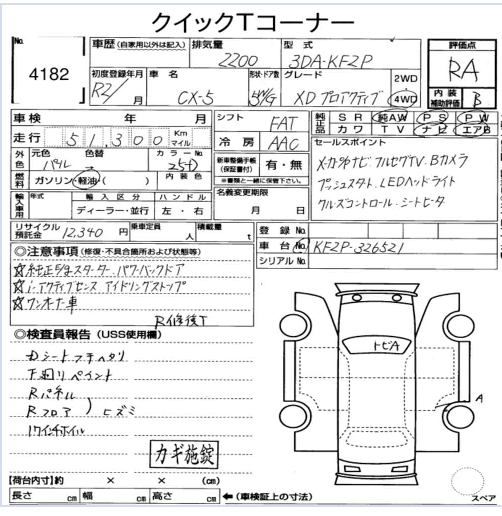 クイックTコーナー
No. 4182
車歴 (自家用以外は記入) 排気量 2200 型式 3DA-KF2P
評価点 RA
初度登録年月 R2/ 月 車名 CX-5 形状・ドア数 5W/G グレード XD プロアクティブ 2WD 4WD
内装補助評価 B
車検 年 月
走行 51,300 Km マイル
シフト FAT
冷房 AAC
純正品 SR 純AW PS PW
カワ TV ナビ エアB
外色 元色 パール 色替 カラーNo. 25D
内装色
燃料 ガソリン・軽油( )
新車整備手帳(保証書付) 有・無
※書類と一緒に保管下さい。
名義変更期限 月 日
セールスポイント
メーカー外ナビ フルセグTV.Bカメラ
プッシュスタート.LEDヘッドライト
クルーズコントロール.シートヒータ
輸入車用 年式 輸入区分 ハンドル
ディーラー・並行 左・右
リサイクル預託金 12,340 円 乗車定員 人 積載量 t
登録No.
車台No. KF2P-326521
シリアルNo.
◎注意事項 (修復・不具合箇所および状態等)
☆純正エンジンスターター パワーバックドア
☆i-アクティブセンス アイドリングストップ
☆ワンオーナー車
R修後T
◎検査員報告 (USS使用欄)
Dシートフチヘタリ
下廻りペイント
Rパネル
Rフロア ) ヒズミ
17インチホイル
カギ施錠
トビA
A
【荷台内寸】約 × × (cm)
長さ cm 幅 cm 高さ cm ←(車検証上の寸法)
スペア